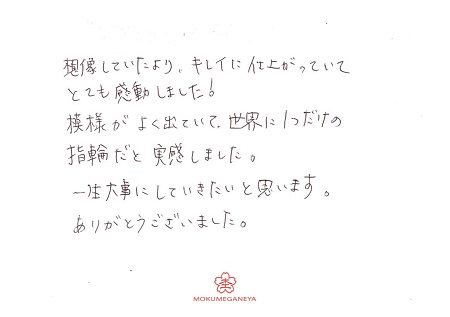 想像していたより、キレイに仕上がっていて
とても感動しました!
模様がよく出ていて、世界に1つだけの
指輪だと実感しました。
一生大事にしていきたいと思います。
ありがとうございました。
MOKUMEGANEYA